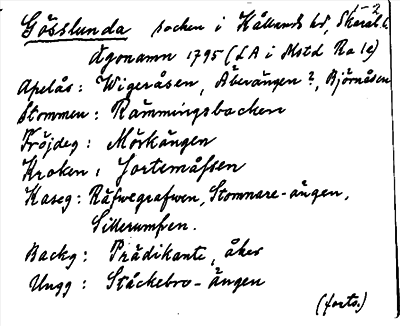 Gösslunda socken i Kållands hd, Skarab. l.
ägonamn 1795 (LA i Mstd Ra 1c)
Apelås: Wigeråsen, Äberängen?, Björnåsen
Stommen: Rämmingsbacken
Fröjdeg: Mörkängen
Kroken: Jortemåssen
Kaseg: Räfwegrafwen, Stomnare-ängen,
Backg: Prädikante, åker
Ungg: Stäckebro-ängen
(forts.)